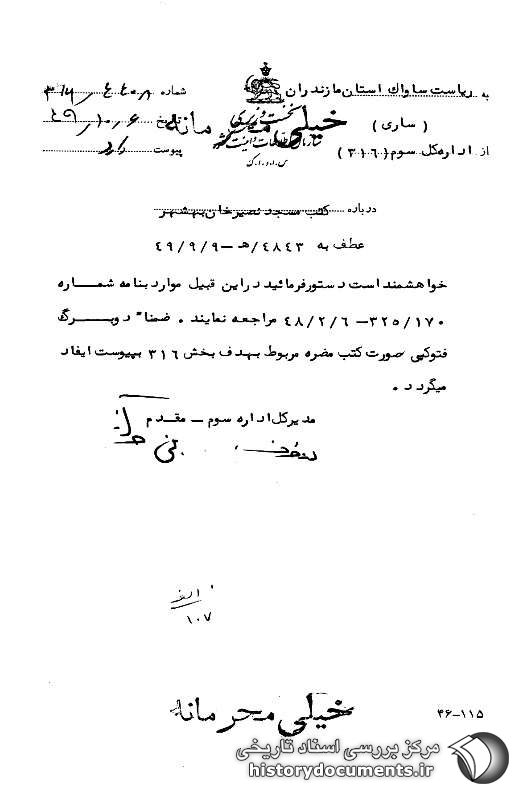 به ریاست ساواک استان مازندران شماره ۳۱۶/۴۴۰۸
(ساری) نخست وزیری تاریخ ۴۹/۱۰/۶
خیلی محرمانه
سازمان اطلاعات و امنیت کشور
از اداره کل سوم (۳۱۶) س.ا.و.ا.ک پیوست دارد
درباره کتب مسجد نصیرخان بهشهر
عطف به ۴۸۴۳/هـ-۴۹/۹/۹
خواهشمند است دستور فرمائید در این قبیل موارد بنامه شماره
۳۲۵/۱۷۰-۴۸/۲/۶ مراجعه نمایند . ضمنا" دو برگ
فتوکپی صورت کتب مضره مربوط بهدف بخش ۳۱۶ بپیوست ایفاد
میگردد .
مدیر کل اداره سوم - مقدم
الف
۱۰۷
خیلی محرمانه
۳۶-۱۱۵
مرکز بررسی اسناد تاریخی
historydocuments.ir